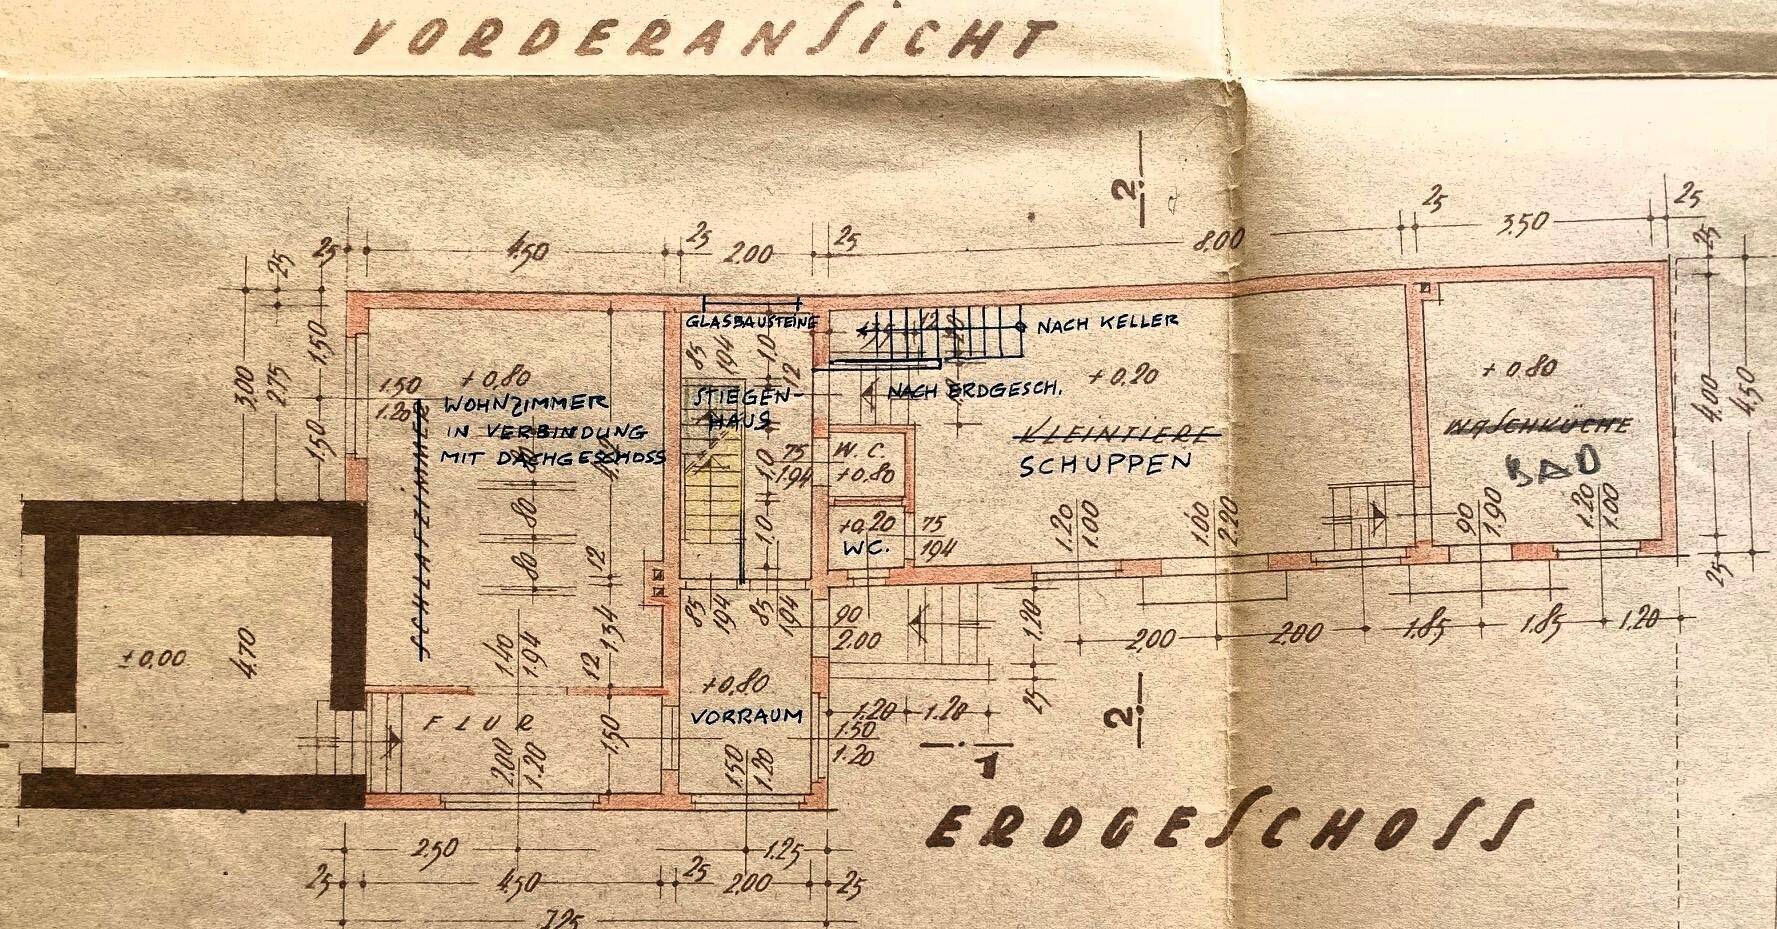 VORDERANSICHT
2.
25
25
25
4.50
25
2.00
25
8.00
25
3.50
25
25
3.00
2.75
1.50
1.50
GLASBAUSTEINE
NACH KELLER
85
194
1.0
12
1.50
1.20
+0,80
WOHNZIMMER
IN VERBINDUNG
MIT DACHGESCHOSS
SCHLAFZIMMER
STIEGEN-
HAUS
NACH ERDGESCH.
+0,20
KLEINTIERE
SCHUPPEN
+0.80
WASCHKÜCHE
BAD
4.00
4.50
25
75
1.94
1.0
W.C.
+0.80
+0,20
WC.
75
194
1.0
80
80
12
1.34
12
1.20
1.00
1.00
2.20
90
1.90
1.20
1.00
85
194
85
194
90
2.00
1.20
25
2.00
2.00
1.85
1.85
1.20
±0,00
4.70
1.40
1.94
+0,80
VORRAUM
FLUR
2.00
1.20
1.50
1.50
1.20
1.20
1.20
1.50
1.20
2.
1
ERDGESCHOSS
2.50
1.25
25
4.50
25
2.00
25
7.25